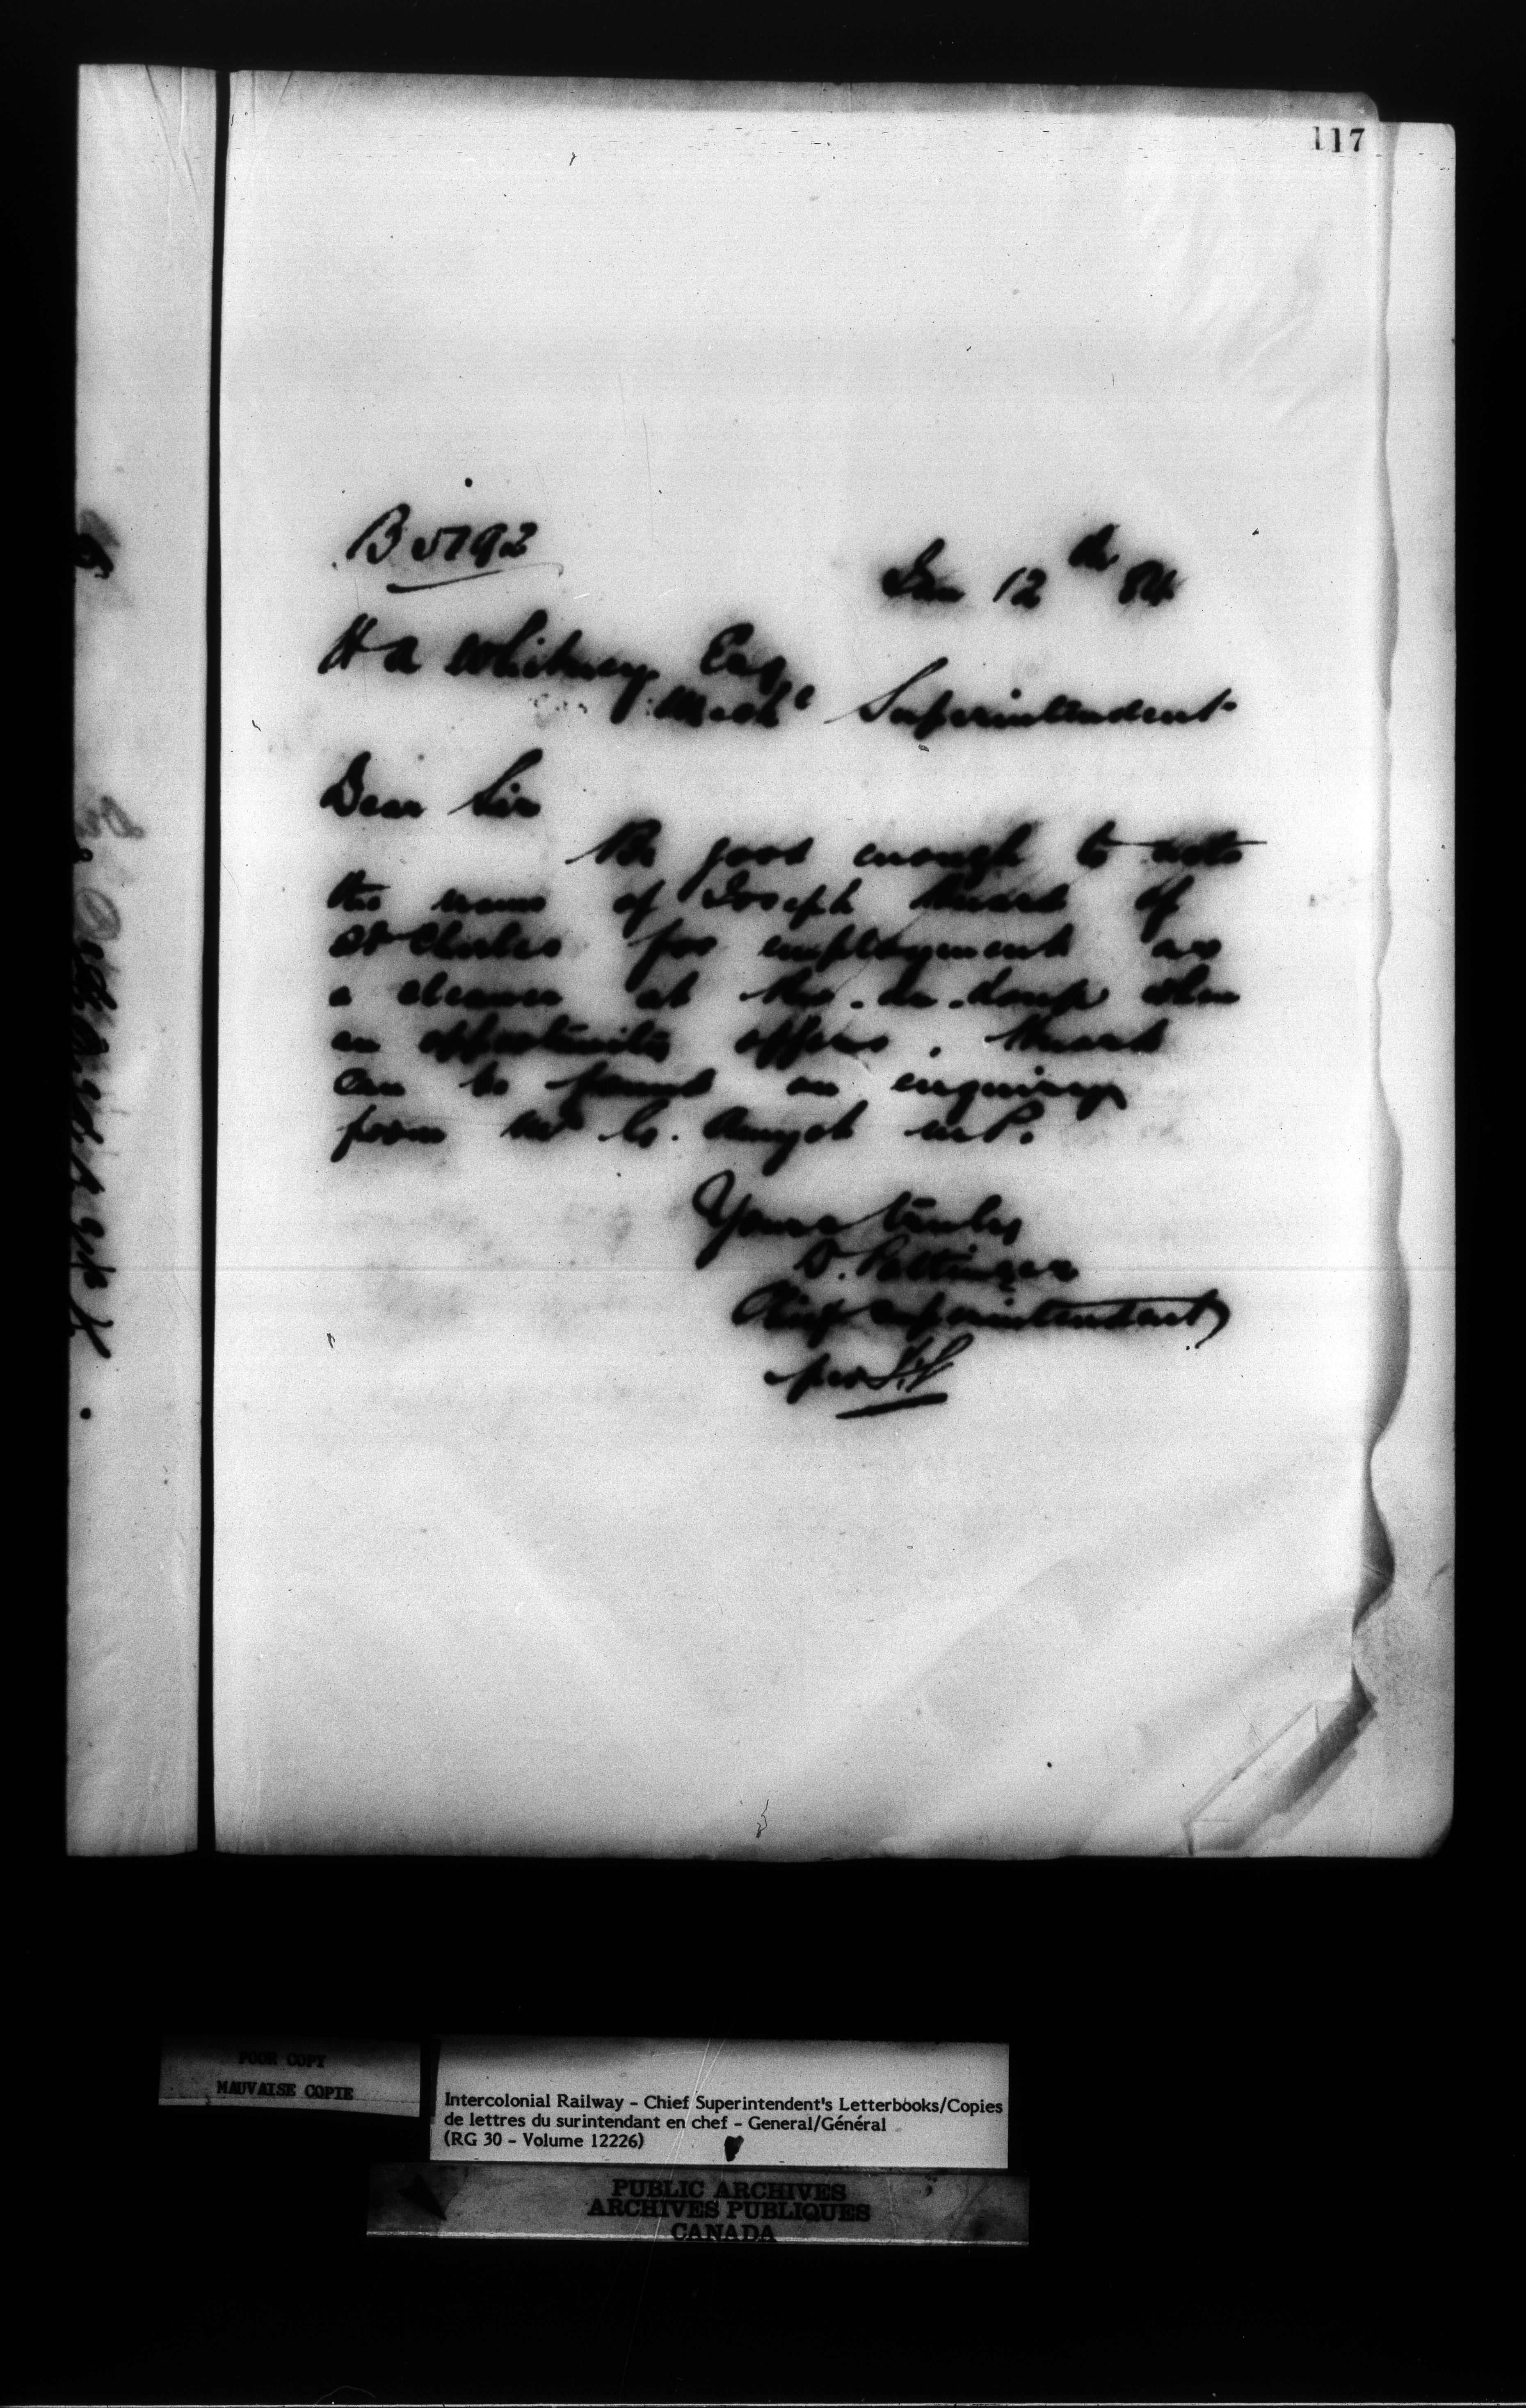 117
B 5792
Jan 12th 84
H A Whitney Esq
Mechl Superintendent
Dear Sir
Be good enough to note
the name of Joseph Huard of
St Charles for employment as
a cleaner at when
an opportunity offers. Huard
can be found on enquiry
from Mr G. Amyot M.P.
Yours truly
D. Pottinger
Chief Superintendent
per
POOR COPY
MAUVAISE COPIE
Intercolonial Railway - Chief Superintendent's Letterbooks/Copies
de lettres du surintendant en chef - General/Général
(RG 30 - Volume 12226)
PUBLIC ARCHIVES
ARCHIVES PUBLIQUES
CANADA